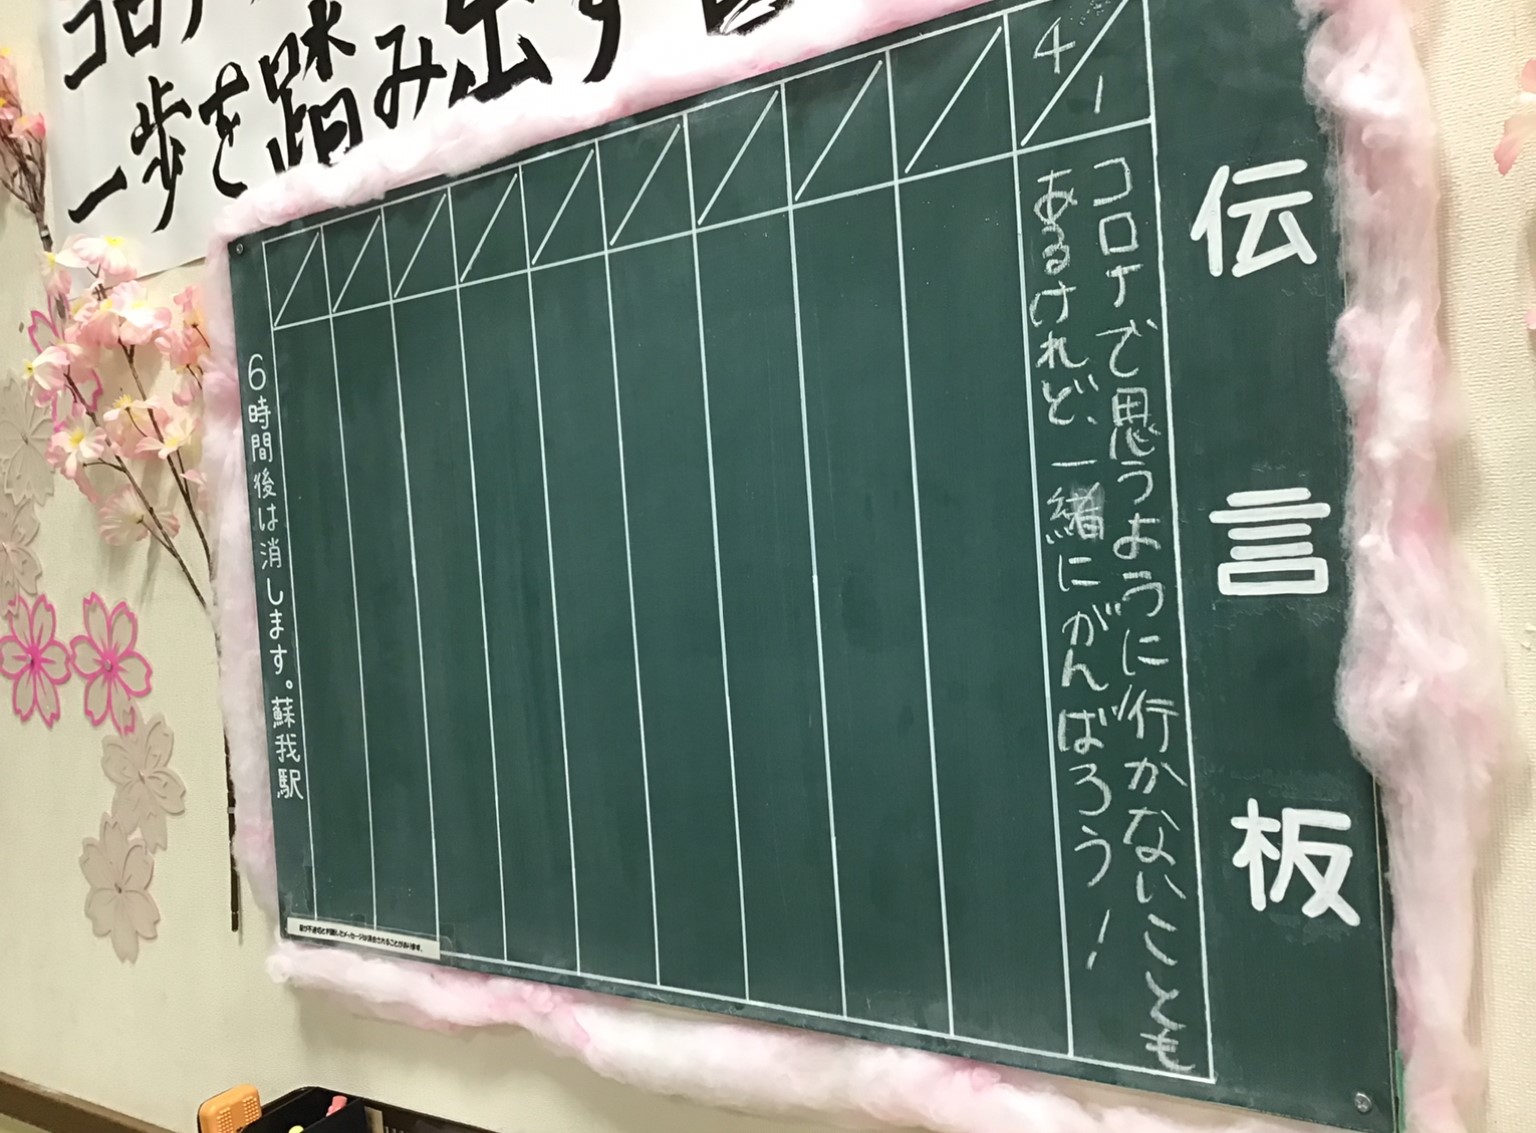 コロナ
一歩を踏み出す
伝言板
4/1
コロナで思うように行かないことも
あるけれど、一緒にがんばろう！
6時間後は消します。蘇我駅